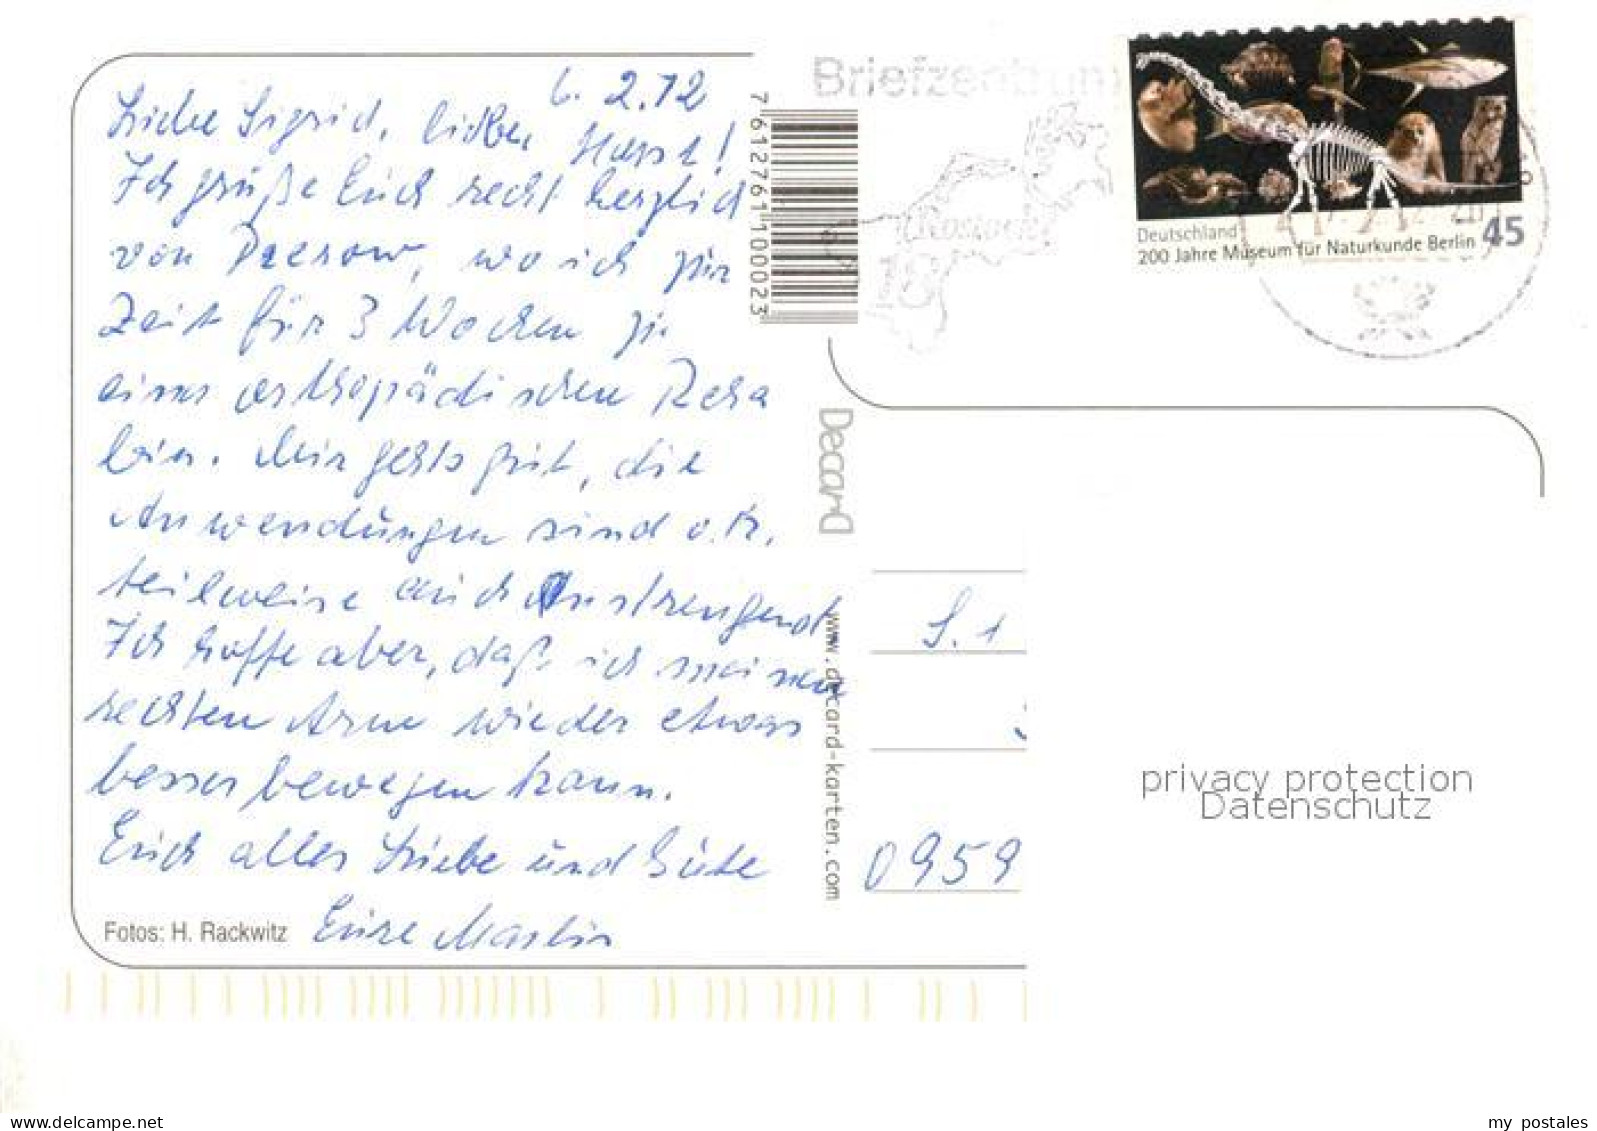 6. 2.12
Liebe Sigrid, lieber Horst!
Ich grüße Euch recht herzlich
von Prerow, wo ich zur
Zeit für 3 Wochen zu
einer orthopädischen Reha
bin. Mir gehts gut, die
Anwendungen sind o.k.
teilweise auch anstrengend
Ich hoffe aber, daß ich meinen
rechten Arm wieder etwas
besser bewegen kann.
Euch alles Liebe und Gute
Eure
Fotos: H. Rackwitz
7612761100023
DeccarD
www.deccard-karten.com
Briefzentrum
Rostock
Deutschland
200 Jahre Museum für Naturkunde Berlin 45
S. 1
0959
privacy protection
Datenschutz
https://www.delcampe.net
my postales